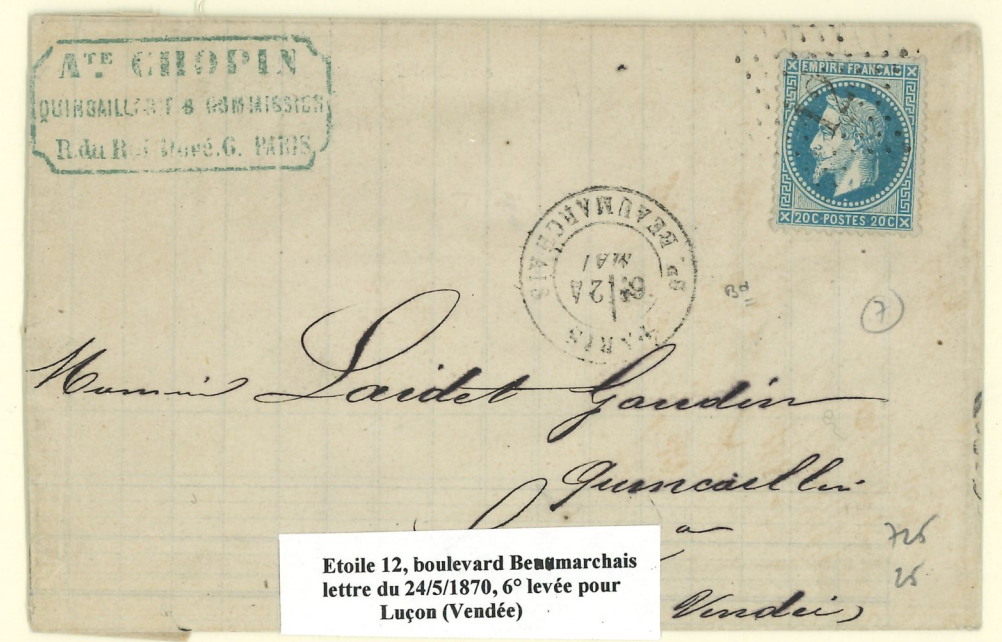 ATE CHOPIN
QUINCAILLERIE & COMMISSION
R. du Roi Doré. 6. PARIS
EMPIRE FRANÇAIS
20C-POSTES 20C
12
PARIS Bd. BEAUMARCHAIS
6E 24
MAI
Bd
7
Monsieur Laidet Gaudin
Quincaillier
a
Vendée
725
25
Etoile 12, boulevard Beaumarchais
lettre du 24/5/1870, 6° levée pour
Luçon (Vendée)